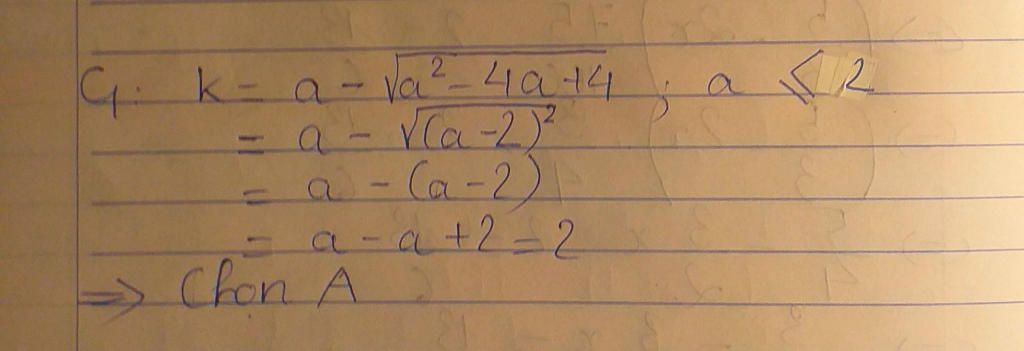 G: k = a - √(a² - 4a + 4) ; a ⩽ 2
= a - √(a - 2)²
= a - (a - 2)
= a - a + 2 = 2
=> Chọn A